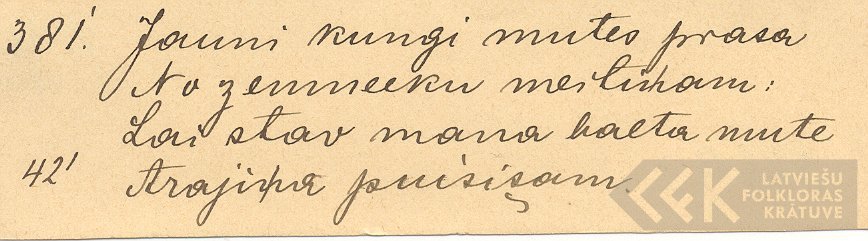 381. Jauni kungi mutes prasa
No zemneeku meitiņam:
Lai stav mana balta mute
42¹ Arajiņa puisișam.
LATVIEŠU
FOLKLORAS
KRĀTUVE